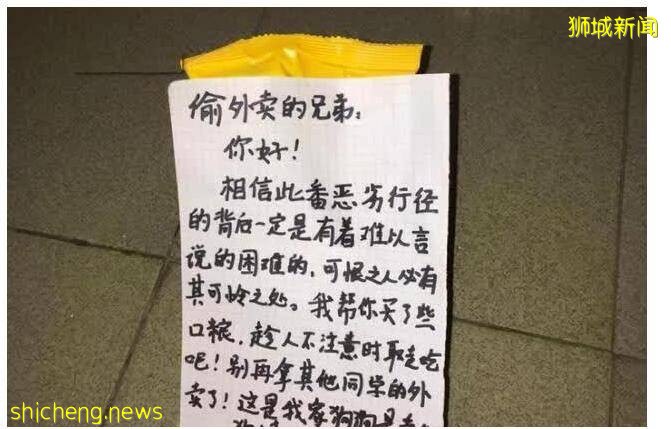 狮城新闻
偷外卖的兄弟：
你好！
相信此番恶劣行径
的背后一定是有着难以言
说的困难的，可恨之人必有
其可怜之处。我帮你买了些
口粮，趁人不注意时取走吃
吧！别再拿其他同学的外
卖了！这是我家狗狗最
shicheng.news